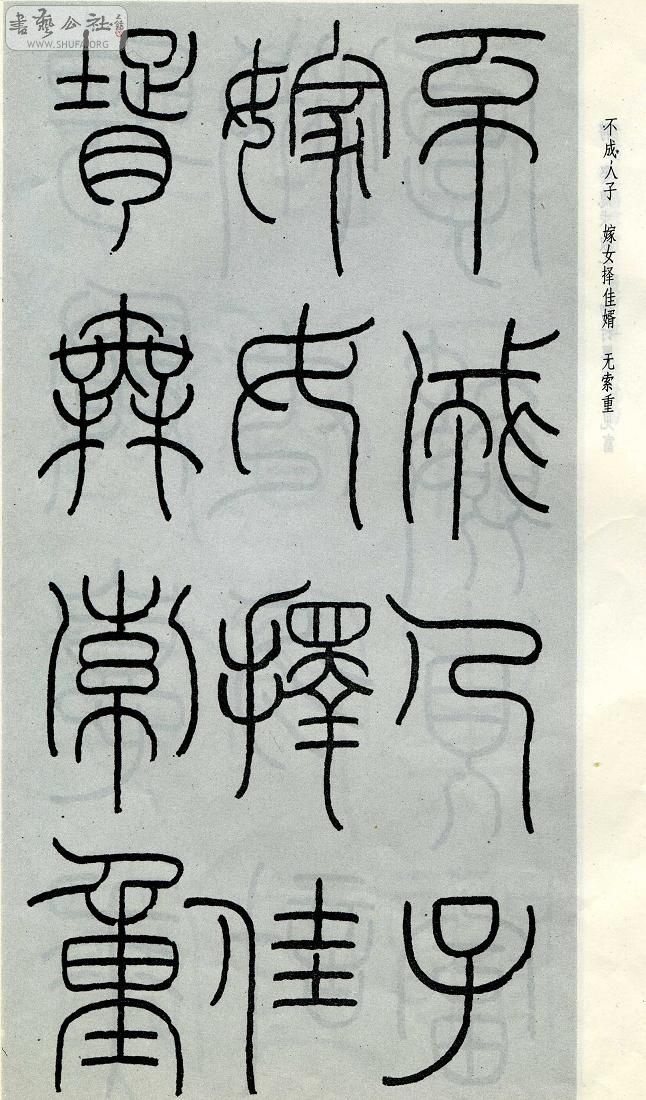 不成人子 嫁女择佳婿 无索重
不成人子
嫁女擇佳
壻無索重
書藝公社
WWW.SHUFA.ORG